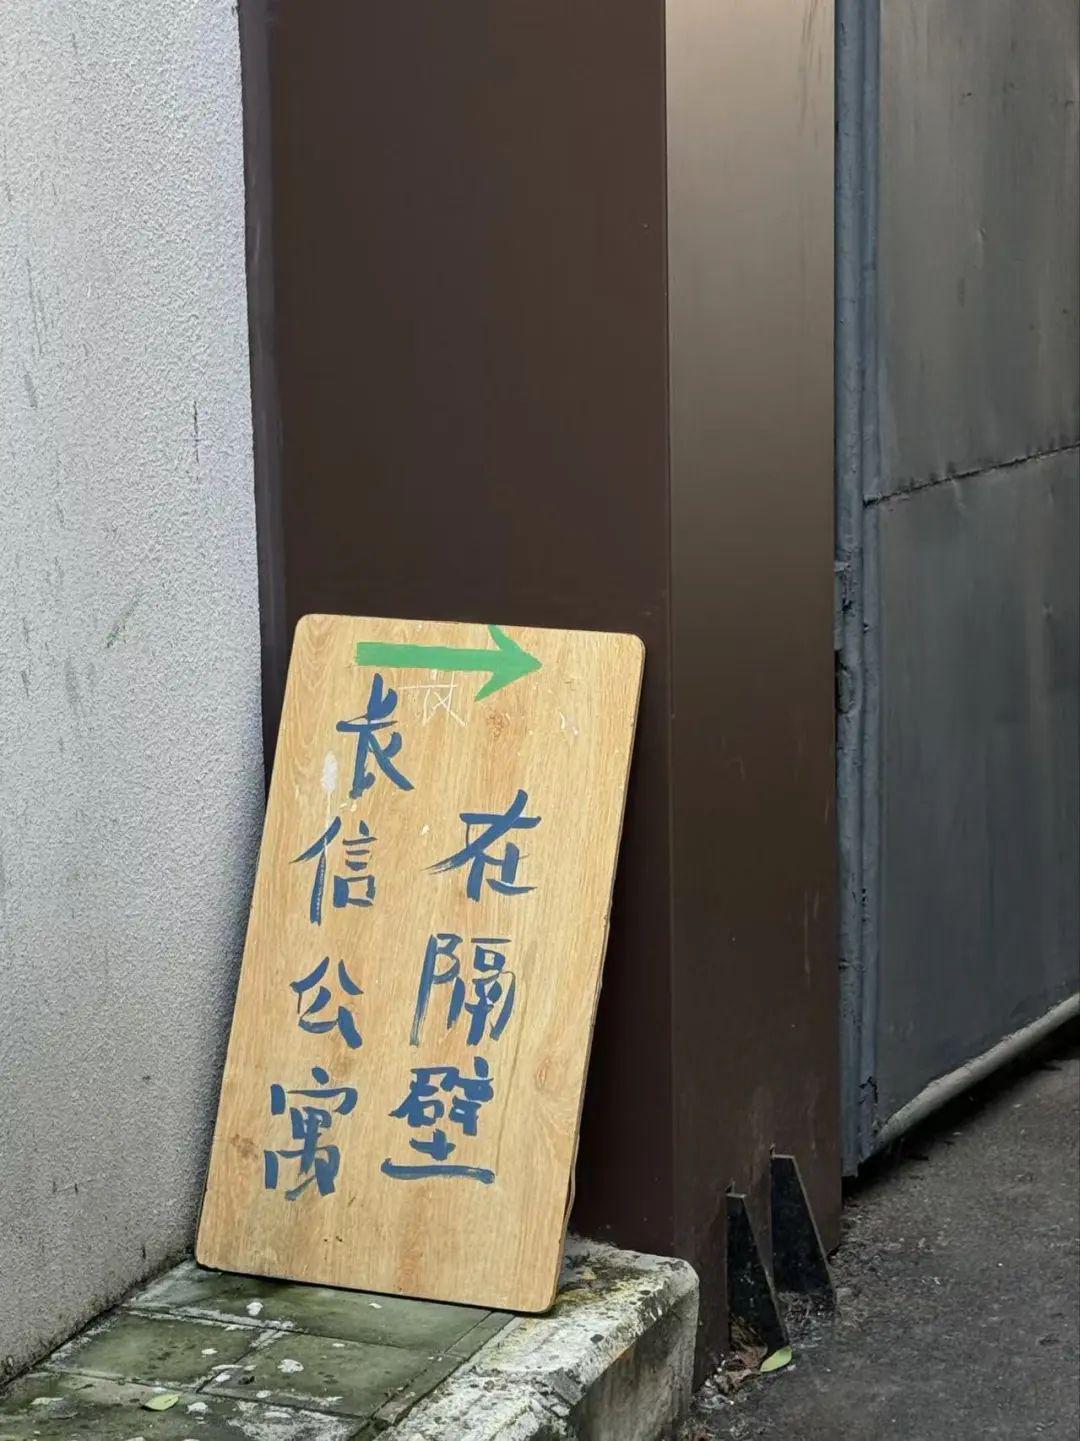 长信公寓
在隔壁